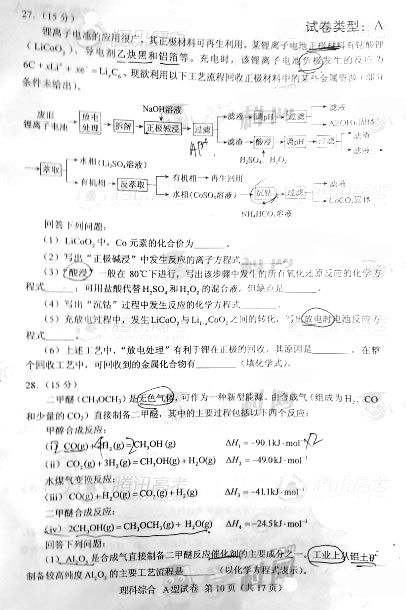 27.（15分）
试卷类型：A
锂离子电池的应用很广，其正极材料可再生利用。某锂离子电池正极材料有钴酸锂
（LiCoO₂）、导电剂乙炔黑和铝箔等。充电时，该锂离子电池负极发生的反应为
6C + xLi⁺ + xe⁻ = LiₓC₆。现欲利用以下工艺流程回收正极材料中的某些金属资源（部分
条件未给出）。
废旧
锂离子电池
放电
处理
拆解
NaOH溶液
正极碱浸
过滤
滤液
调pH
过滤
滤液
Al(OH)₃固体
滤渣
酸浸
调pH
过滤
滤渣
滤液
H₂SO₄ H₂O₂
萃取
水相(Li₂SO₄溶液)
有机相
反萃取
有机相
再生回用
水相(CoSO₄溶液)
沉钴
过滤
滤液
CoCO₃固体
NH₄HCO₃溶液
回答下列问题：
（1）LiCoO₂中，Co元素的化合价为______。
（2）写出“正极碱浸”中发生反应的离子方程式______
（3）“酸浸”一般在80℃下进行，写出该步骤中发生的所有氧化还原反应的化学方
程式______；可用盐酸代替H₂SO₄和H₂O₂的混合液，但缺点是______。
（4）写出“沉钴”过程中发生反应的化学方程式______
（5）充放电过程中，发生LiCoO₂与Li₁₋ₓCoO₂之间的转化，写出放电时电池反应方
程式______
（6）上述工艺中，“放电处理”有利于锂在正极的回收，其原因是______。在整
个回收工艺中，可回收到的金属化合物有______（填化学式）。
28.（15分）
二甲醚（CH₃OCH₃）是无色气体，可作为一种新型能源。由合成气（组成为H₂、CO
和少量的CO₂）直接制备二甲醚，其中的主要过程包括以下四个反应：
甲醇合成反应：
(i) CO(g) + 2H₂(g) = CH₃OH (g) ΔH₁ = -90.1kJ·mol⁻¹ ×2
(ii) CO₂(g) + 3H₂(g) = CH₃OH(g) + H₂O(g) ΔH₂ = -49.0kJ·mol⁻¹
水煤气变换反应：
(iii) CO(g) + H₂O(g) = CO₂(g) + H₂(g) ΔH₃ = -41.1kJ·mol⁻¹
二甲醚合成反应：
(iv) 2CH₃OH(g) = CH₃OCH₃(g) + H₂O(g) ΔH₄ = -24.5kJ·mol⁻¹
回答下列问题：
（1）Al₂O₃是合成气直接制备二甲醚反应催化剂的主要成分之一。工业上从铝土矿
制备较高纯度Al₂O₃的主要工艺流程是______（以化学方程式表示）。
理科综合 A型试卷 第10页（共17页）